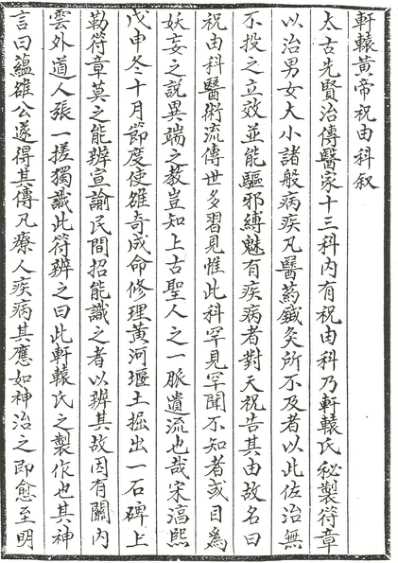 軒轅黃帝祝由科叙
太古先賢治傳醫家十三科內有祝由科乃軒轅氏秘製符章
以治男女大小諸般病疾凡醫葯鍼灸所不及者以此佐治無
不投之立效並能驅邪縛魅有疾病者對天祝告其由故名曰
祝由科醫術流傳世多習見惟此科罕見罕聞不知者或目爲
妖妄之說異端之教豈知上古聖人之一脈遺流也哉宋淳熙
戊申冬十月節度使雒奇成命修理黃河堰土掘出一石碑上
勒符章莫之能辦宣諭民間招能識之者以辨其故因有關內
雲外道人張一搓獨識此符辨之曰此軒轅氏之製作也其神
言曰蘊雒公遂得其傳凡療人疾病其應如神治之即愈至明